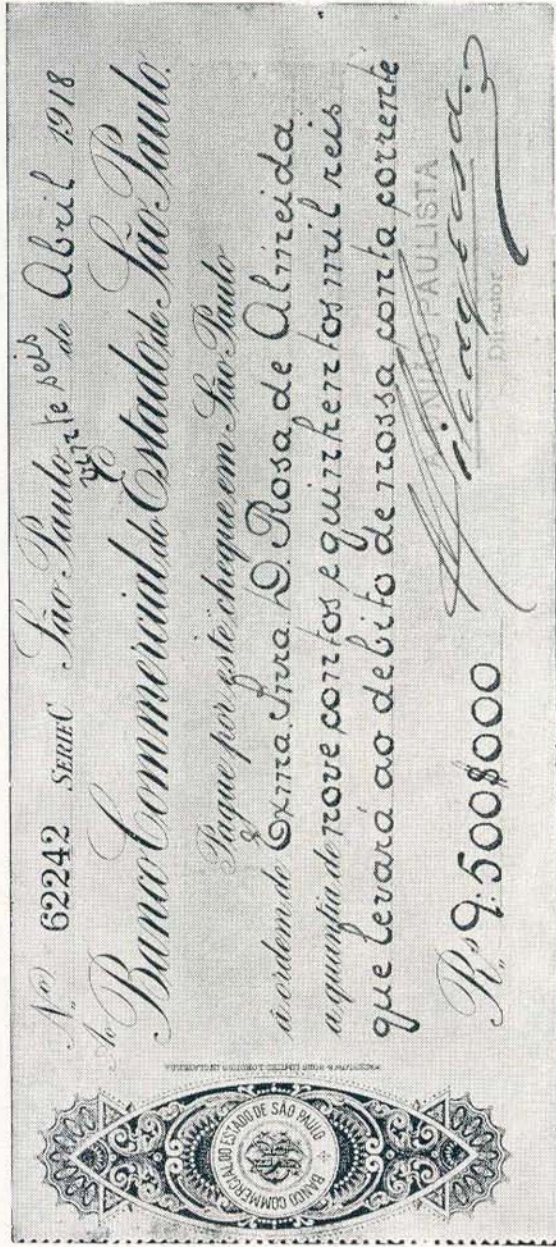 Nº 62242 SERIE C São Paulo, vinte e seis de Abril 1918
Ao Banco Commercial do Estado de São Paulo.
Pague por este cheque, em São Paulo
á ordem de Exma. Snra. D. Rosa de Almeida
a quantia de nove contos e quinhentos mil reis
que levará ao debito de nossa conta corrente
Rs 9:500$000
A UNIÃO PAULISTA
Director
BANCO COMMERCIAL DO ESTADO DE SÃO PAULO